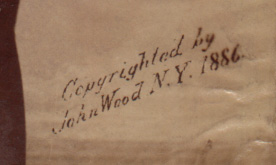 Copyrighted by
John Wood N.Y. 1886.